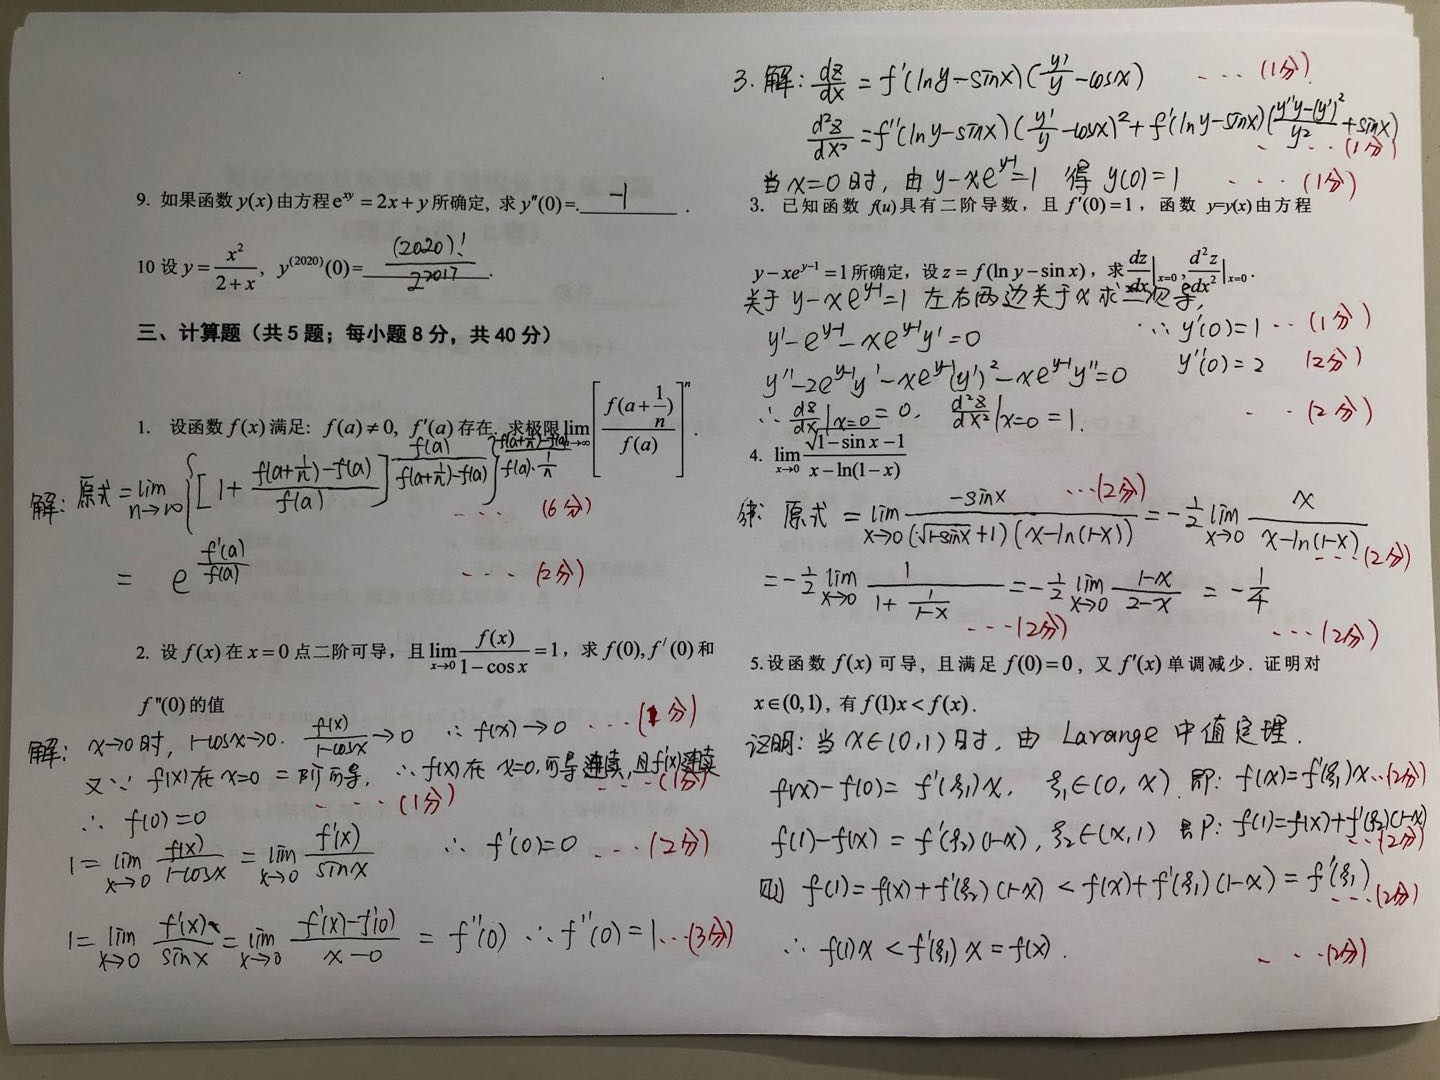 9. 如果函数 y(x) 由方程 e^{xy} = 2x + y 所确定, 求 y''(0) =. -1 .
10 设 y = \frac{x^2}{2+x}, y^{(2020)}(0) = \frac{(2020)!}{2^{2017}}.
三、计算题（共 5 题；每小题 8 分，共 40 分）
1. 设函数 f(x) 满足: f(a) ≠ 0, f'(a) 存在. 求极限 \lim_{n→∞} [\frac{f(a+\frac{1}{n})}{f(a)}]^n .
解: 原式 = \lim_{n→∞} {[1 + \frac{f(a+\frac{1}{n})-f(a)}{f(a)}]^{\frac{f(a)}{f(a+\frac{1}{n})-f(a)}}}^{\frac{f(a+\frac{1}{n})-f(a)}{f(a)·\frac{1}{n}}} ... (6分)
= e^{\frac{f'(a)}{f(a)}} .... (2分)
2. 设 f(x) 在 x = 0 点二阶可导，且 \lim_{x→0} \frac{f(x)}{1-\cos x} = 1，求 f(0), f'(0) 和
f''(0) 的值
解: x→0时, 1-cosx→0. \frac{f(x)}{1-cosx}→0 ∴ f(x)→0 ... (1分)
又∵ f(x)在 x=0 二阶可导, ∴ f(x)在 x=0.可导连续,且f'(x)连续
... (1分)
∴ f(0)=0 ... (1分)
1 = \lim_{x→0} \frac{f(x)}{1-cosx} = \lim_{x→0} \frac{f'(x)}{sinx} ∴ f'(0)=0 ... (2分)
1 = \lim_{x→0} \frac{f'(x)}{sinx} = \lim_{x→0} \frac{f'(x)-f'(0)}{x-0} = f''(0) ∴ f''(0)=1 ... (3分)
3. 解: \frac{dz}{dx} = f'(lny-sinx)(\frac{y'}{y}-cosx) ... (1分)
\frac{d^2z}{dx^2} = f''(lny-sinx)(\frac{y'}{y}-cosx)^2 + f'(lny-sinx)(\frac{y''y-(y')^2}{y^2}+sinx)
... (1分)
当 x=0时, 由 y-xe^{y-1}=1 得 y(0)=1 ... (1分)
3. 已知函数 f(u) 具有二阶导数，且 f'(0) = 1，函数 y=y(x) 由方程
y - xe^{y-1} = 1 所确定，设 z = f(\ln y - \sin x)，求 \frac{dz}{dx}|_{x=0}, \frac{d^2z}{dx^2}|_{x=0}.
关于 y-xe^{y-1}=1 左右两边关于x求二次导,
y'-e^{y-1}-xe^{y-1}y'=0 ∴ y'(0)=1 ... (1分)
y''-2e^{y-1}y'-xe^{y-1}(y')^2-xe^{y-1}y''=0 y''(0)=2 (2分)
∴ \frac{dz}{dx}|_{x=0}=0. \frac{d^2z}{dx^2}|_{x=0}=1. ... (2分)
4. \lim_{x→0} \frac{\sqrt{1-\sin x}-1}{x-\ln(1-x)}
解: 原式 = \lim_{x→0} \frac{-sinx}{(\sqrt{1-sinx}+1)(x-ln(1-x))} ...(2分) = -\frac{1}{2}\lim_{x→0} \frac{x}{x-ln(1-x)} ... (2分)
= -\frac{1}{2}\lim_{x→0} \frac{1}{1+\frac{1}{1-x}} = -\frac{1}{2}\lim_{x→0} \frac{1-x}{2-x} = -\frac{1}{4}
... (2分) ... (2分)
5. 设函数 f(x) 可导，且满足 f(0) = 0，又 f'(x) 单调减少. 证明对
x∈(0,1), 有 f(1)x < f(x).
证明: 当 x∈(0,1)时, 由 Larange 中值定理.
f(x)-f(0)=f'(ξ_1)x, ξ_1∈(0,x) 即: f(x)=f'(ξ_1)x ...(2分)
f(1)-f(x)=f'(ξ_2)(1-x), ξ_2∈(x,1) 即: f(1)=f(x)+f'(ξ_2)(1-x)
... (2分)
则 f(1)=f(x)+f'(ξ_2)(1-x) < f(x)+f'(ξ_1)(1-x) = f'(ξ_1) ... (2分)
∴ f(1)x < f'(ξ_1)x = f(x). ... (2分)